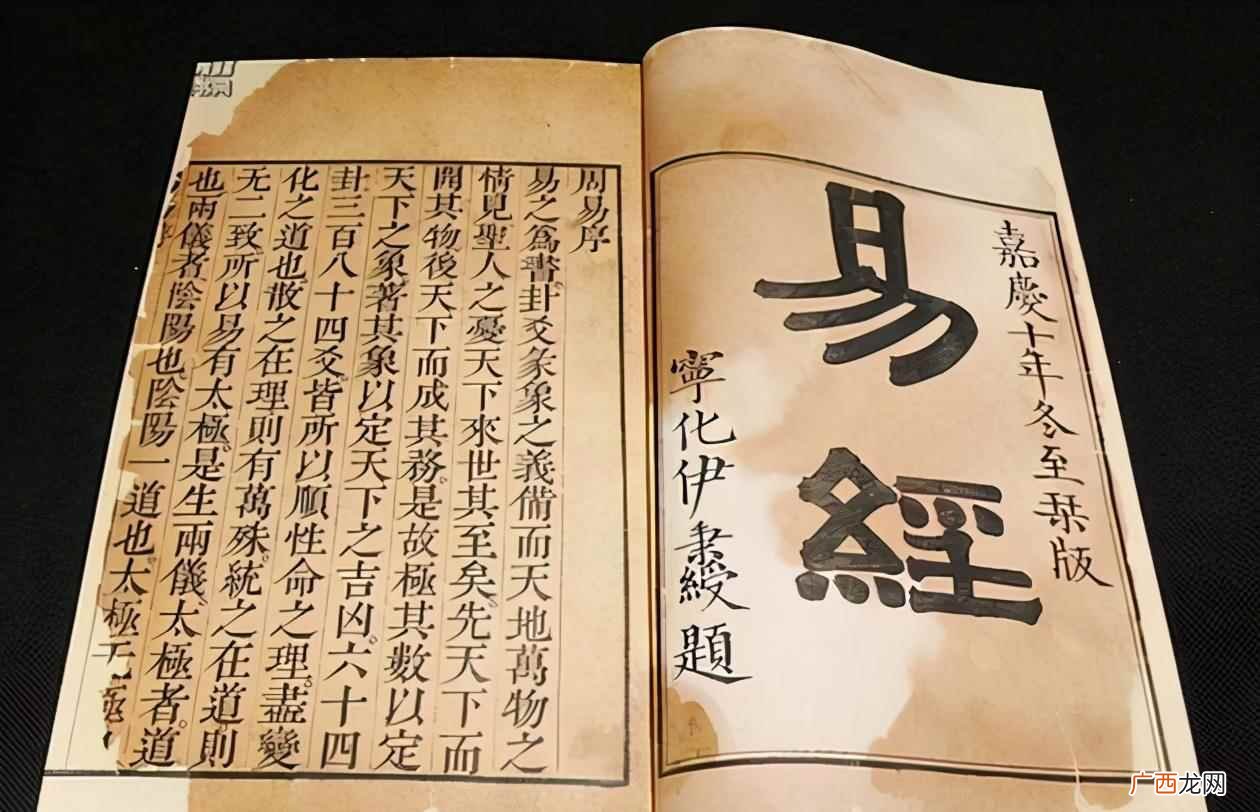 嘉慶十年冬至栞版
易經
寧化伊秉綬題
周易序
易之爲書。卦爻彖象之義備而天地萬物之
情見聖人之憂天下來世其至矣。先天下而
開其物。後天下而成其務。是故極其數以定
天下之象。著其象以定天下之吉凶。六十四
卦三百八十四爻。皆所以順性命之理。盡變
化之道也。散之在理則有萬殊。統之在道則
无二致。所以易有太極。是生兩儀。太極者。道
也兩儀者陰陽也陰陽一道也。太極无極
广西龙网